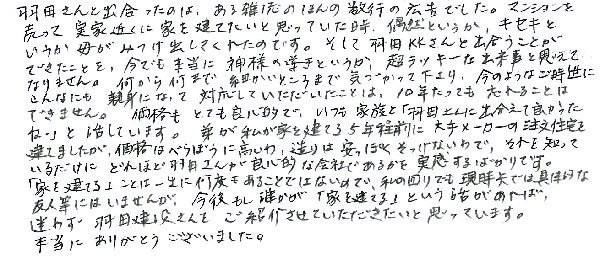 羽田さんと出合ったのは、ある雑誌のほんの数行の広告でした。マンションを
売って実家近くに家を建てたいと思っていた時、偶然というか、キセキと
いうか母がみつけ出してくれたのです。そして羽田KKさんと出会うことが
できたことを、今でも本当に神様の導きというか、超ラッキーな出来事と思えて
なりません。何から何まで細かいところまで気づかって下さり、今のようなご時世に
こんなにも親身になって対応していただいたことは、10年たっても忘れることは
できません。価格もとても良心的で、いつも家族と「羽田さんに出会えて良かった
ね」と話しています。弟が私が家を建てる5年程前に大手メーカーの注文住宅を
建てましたが、価格はべらぼうに高いわ、造りは安っぽくそっけないわで、それを知って
いるだけにどれほど羽田さんが良心的な会社であるかを実感するばかりです。
「家を建てる」ことは一生に何度もあることではないので、私の回りでも現時点では具体的な
友人等にはいませんが、今後もし誰かが「家を建てる」という話があれば、
迷わず羽田建設さんをご紹介させていただきたいと思っています。
本当にありがとうございました。